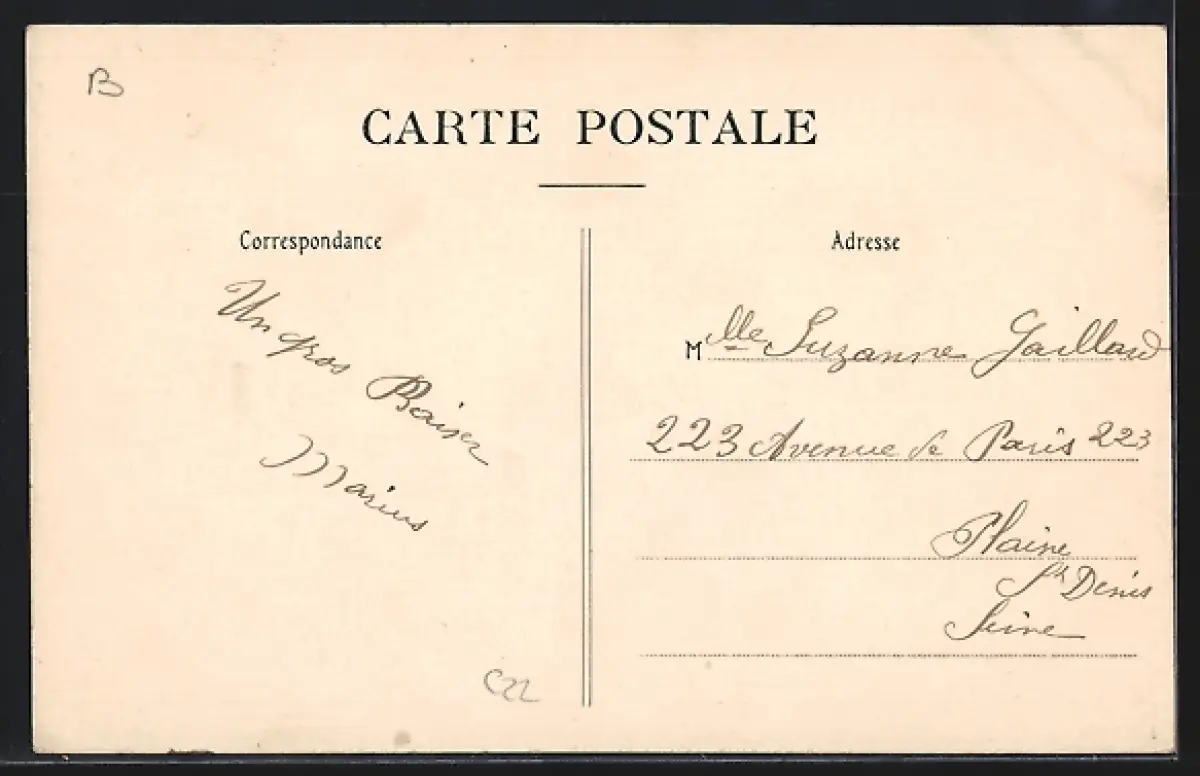 B
CARTE POSTALE
Correspondance
Un gros Baiser
Marius
C22
Adresse
Mlle Suzanne Gaillard
223 Avenue de Paris 223
Plaine
St Denis
Seine